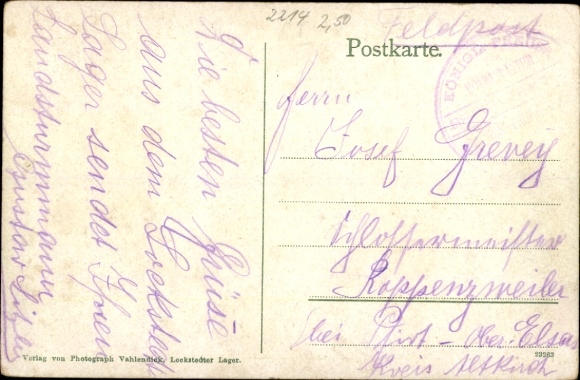 2214 2,50
Feldpost
Postkarte.
KÖNIGL.
Herrn
Josef Grevey
Schlossermeister
Roppenzweiler
bei Pfirt - Ober-Elsass
Kreis Altkirch
Die besten Grüße
aus dem Lockstedt
Lager sendet Ihnen
Landsturmmann
Gustav
Verlag von Photograph Vahlendick, Lockstedter Lager.
23263